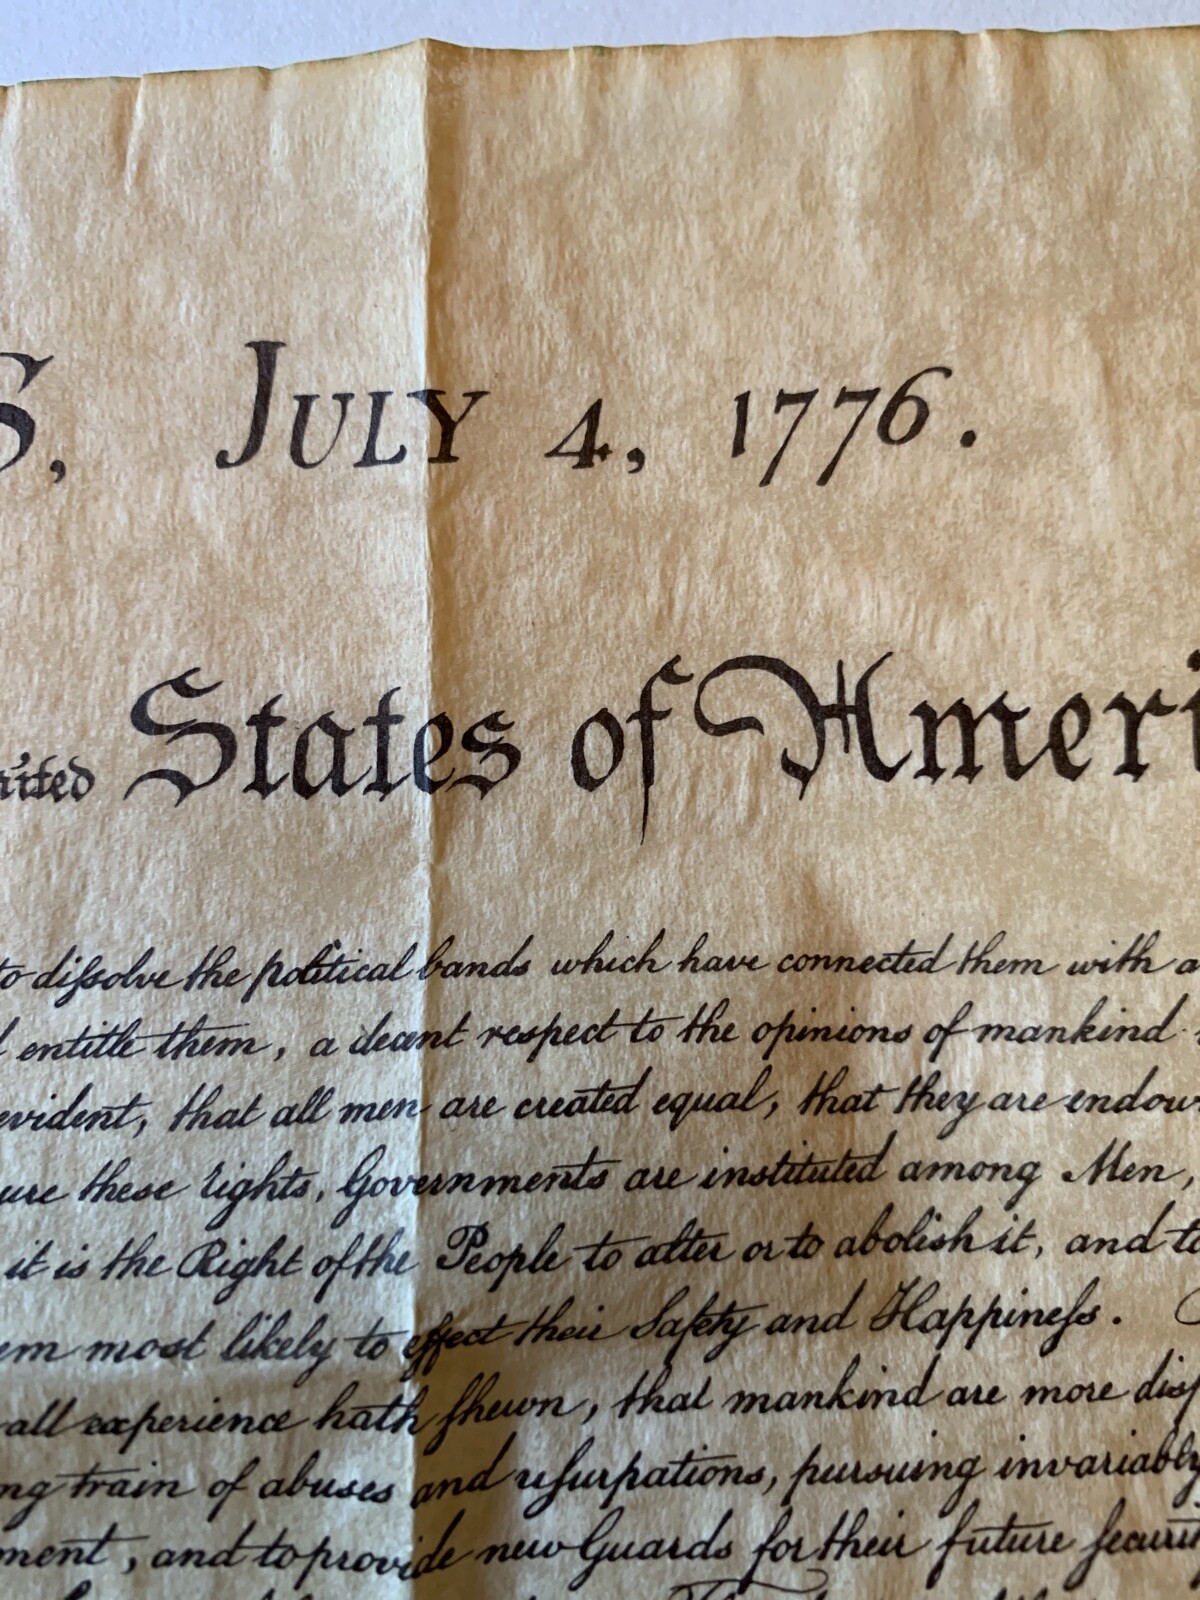 S, JULY 4, 1776.
nited States of Ameri
to diſsolve the political bands which have connected them with a
l entitle them, a decent respect to the opinions of mankind
evident, that all men are created equal, that they are endow
ure these rights, Governments are instituted among Men,
it is the Right of the People to alter or to abolish it, and to
em most likely to effect their Safety and Happineſs.
all experience hath ſhewn, that mankind are more disp
ng train of abuses and uſurpations, pursuing invariably
ment, and to provide new Guards for their future ſecuri